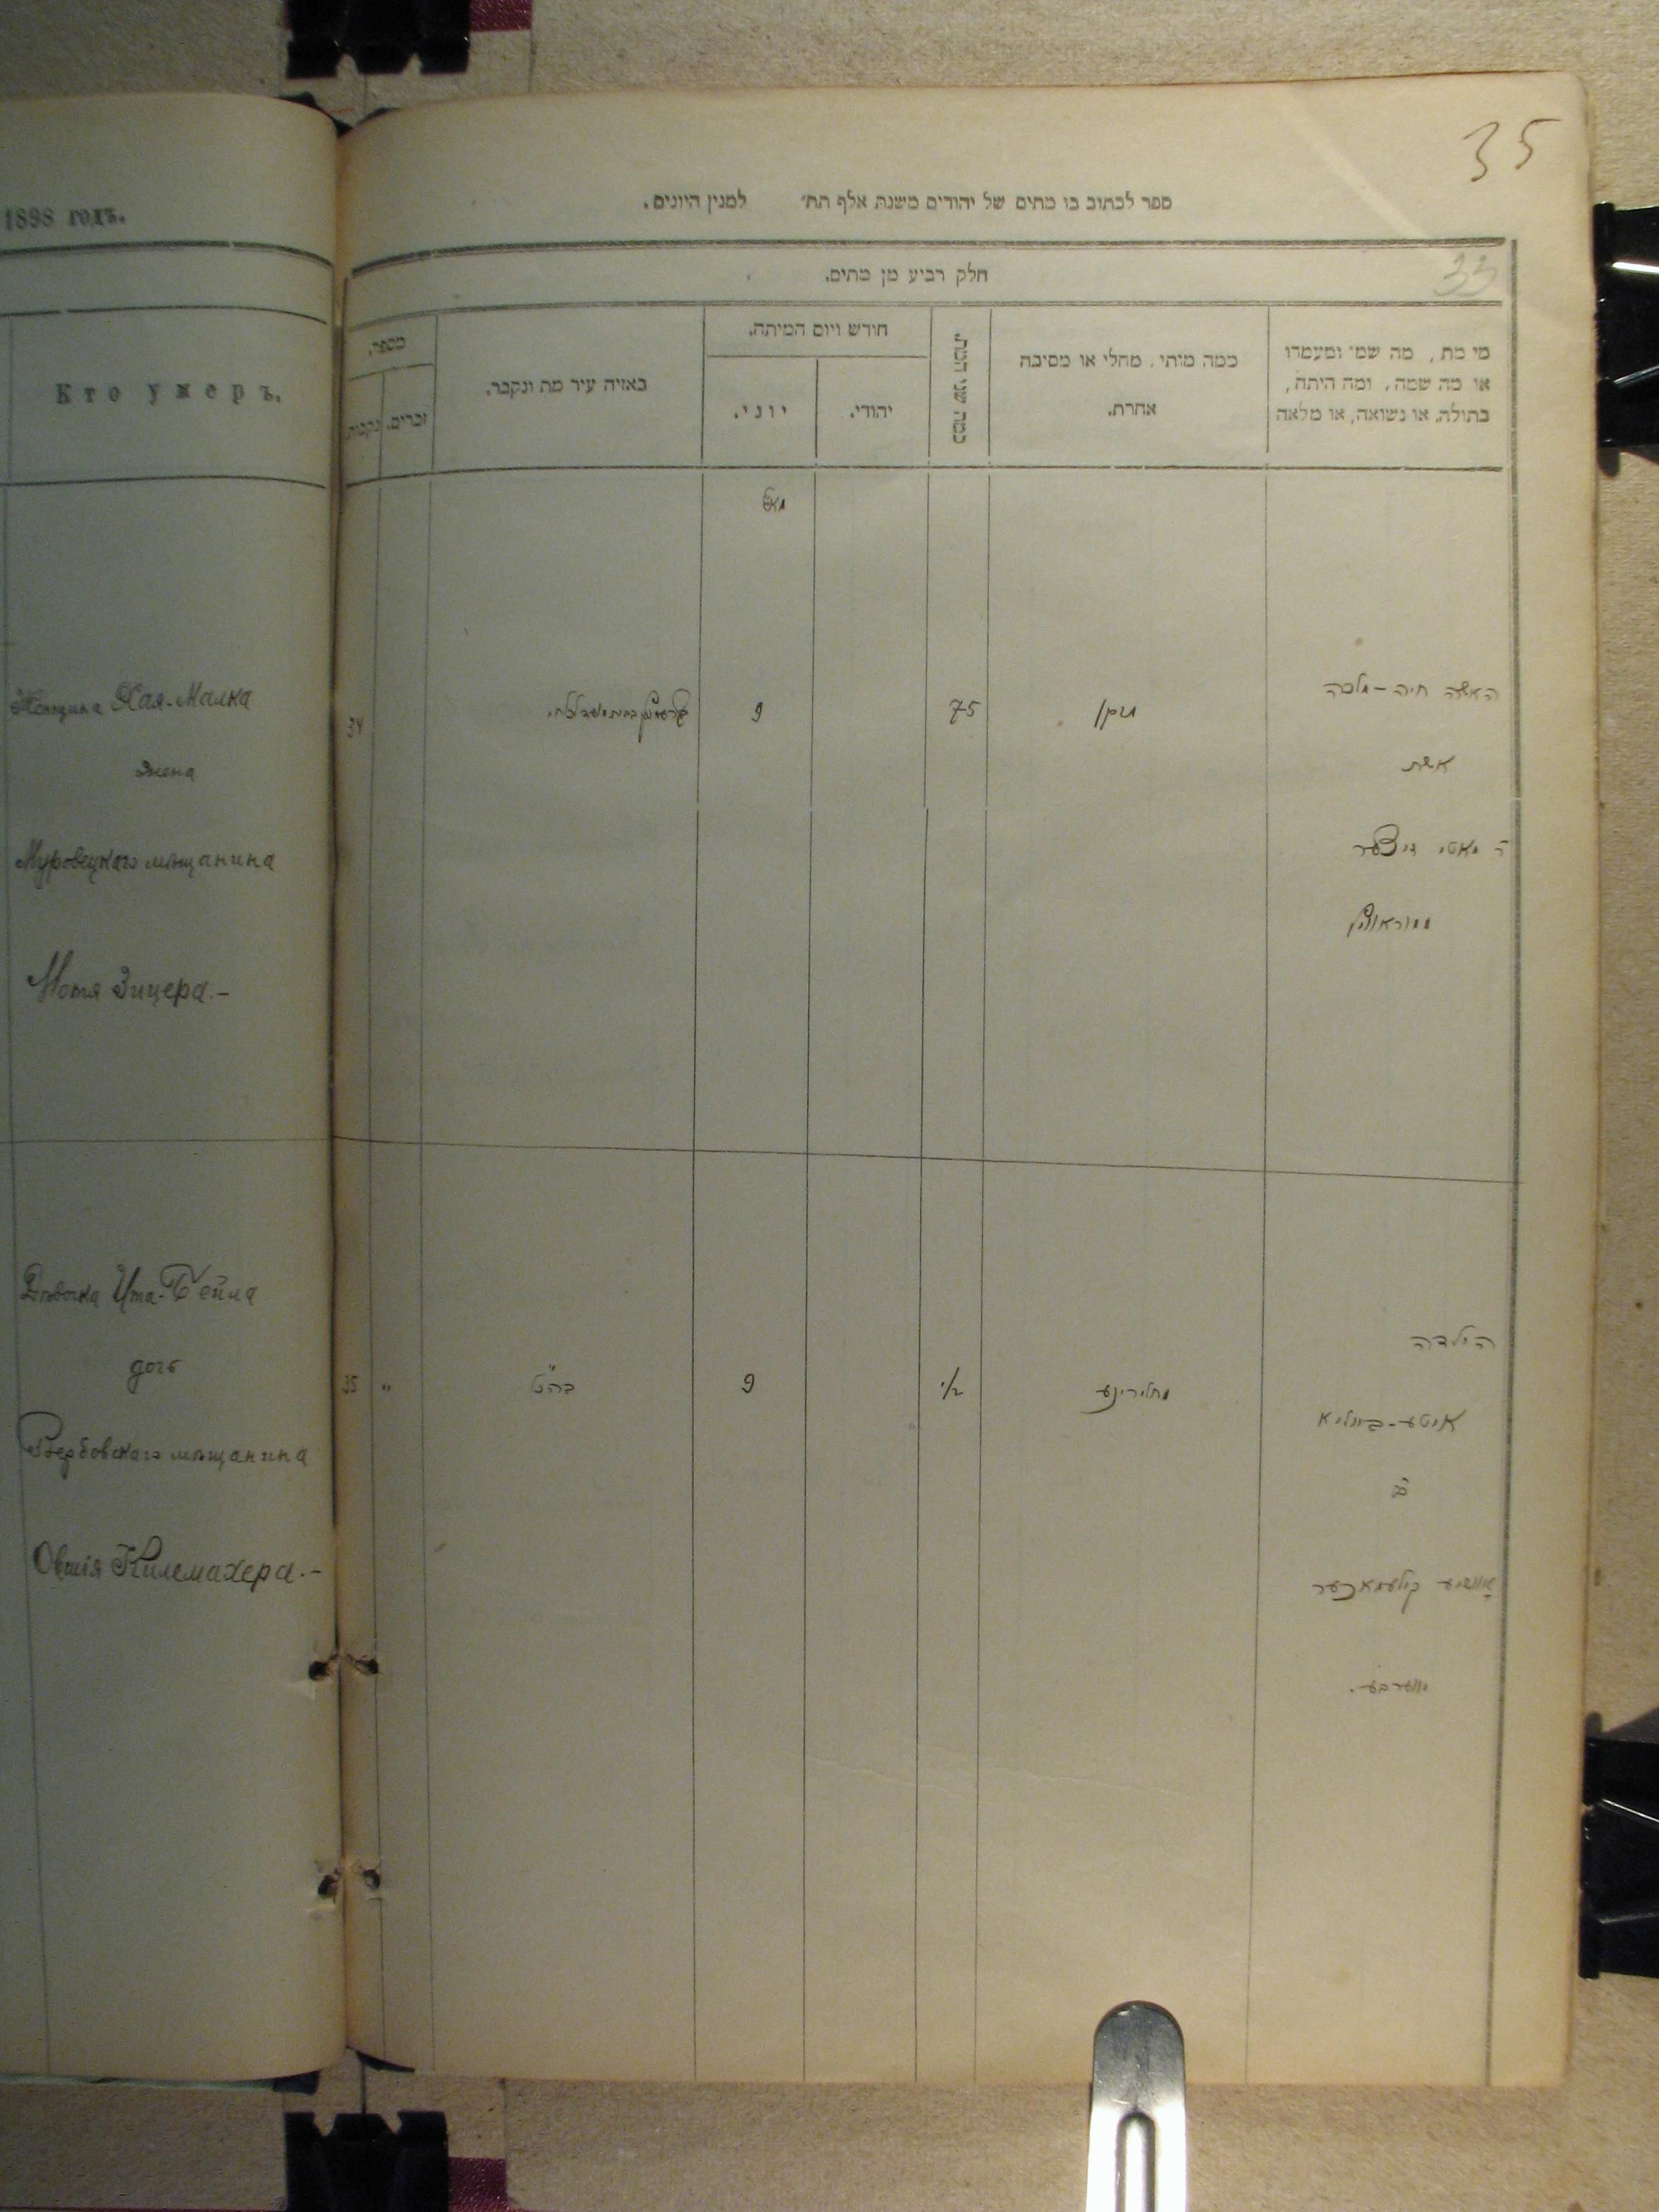 1898 годъ.
Кто умеръ.
Женщина Хая-Малка
жена
Муровецкаго мѣщанина
Мотя Зицера.-
Дѣвочка Ита-Бейла
дочь
Вербовскаго мѣщанина
Овшія Килемахера.-
35
ספר לכתוב בו מתים של יהודים משנת אלף תת׳ למנין היונים.
33
חלק רביע מן מתים.
מי מת, מה שמו ומעמדו
או מה שמה, ומה היתה,
בתולה, או נשואה, או מלאה
ממה מותי, מחלי או מסיבה
אחרת.
כמה שני המת.
חודש ויום המיתה.
יהודי.
יוני.
באיזה עיר מת ונקבר.
מספר.
זכרים.
נקבות.
מאי
האשה חיה-מלכה
אשת
ר מאטי זיצער
מזקן
75
9
34
הילדה
איטע-ביילא
בת
אוושיע קילעמאכער
מווערבע.
1/2
9
כה״נ
"
35